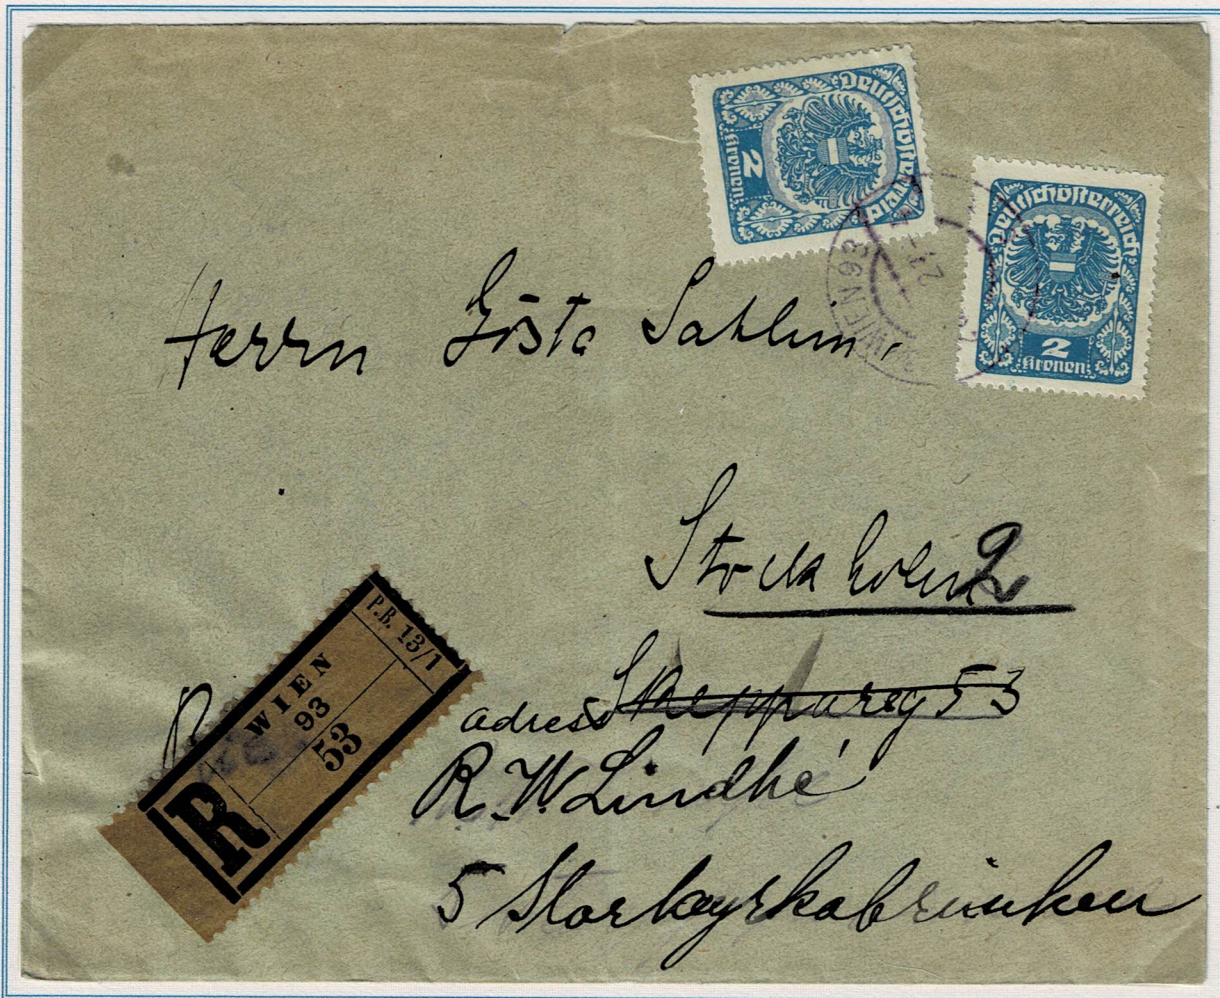 Deutschösterreich
2
Kronen
Deutschösterreich
2
Kronen
WIEN 93
Herrn Gösta Sahlin
Stockholm 2
adress Skeppareg 53
R. W. Lindhé
5 Storkyrkobrinken
P.B. 13/1
WIEN
93
53
R